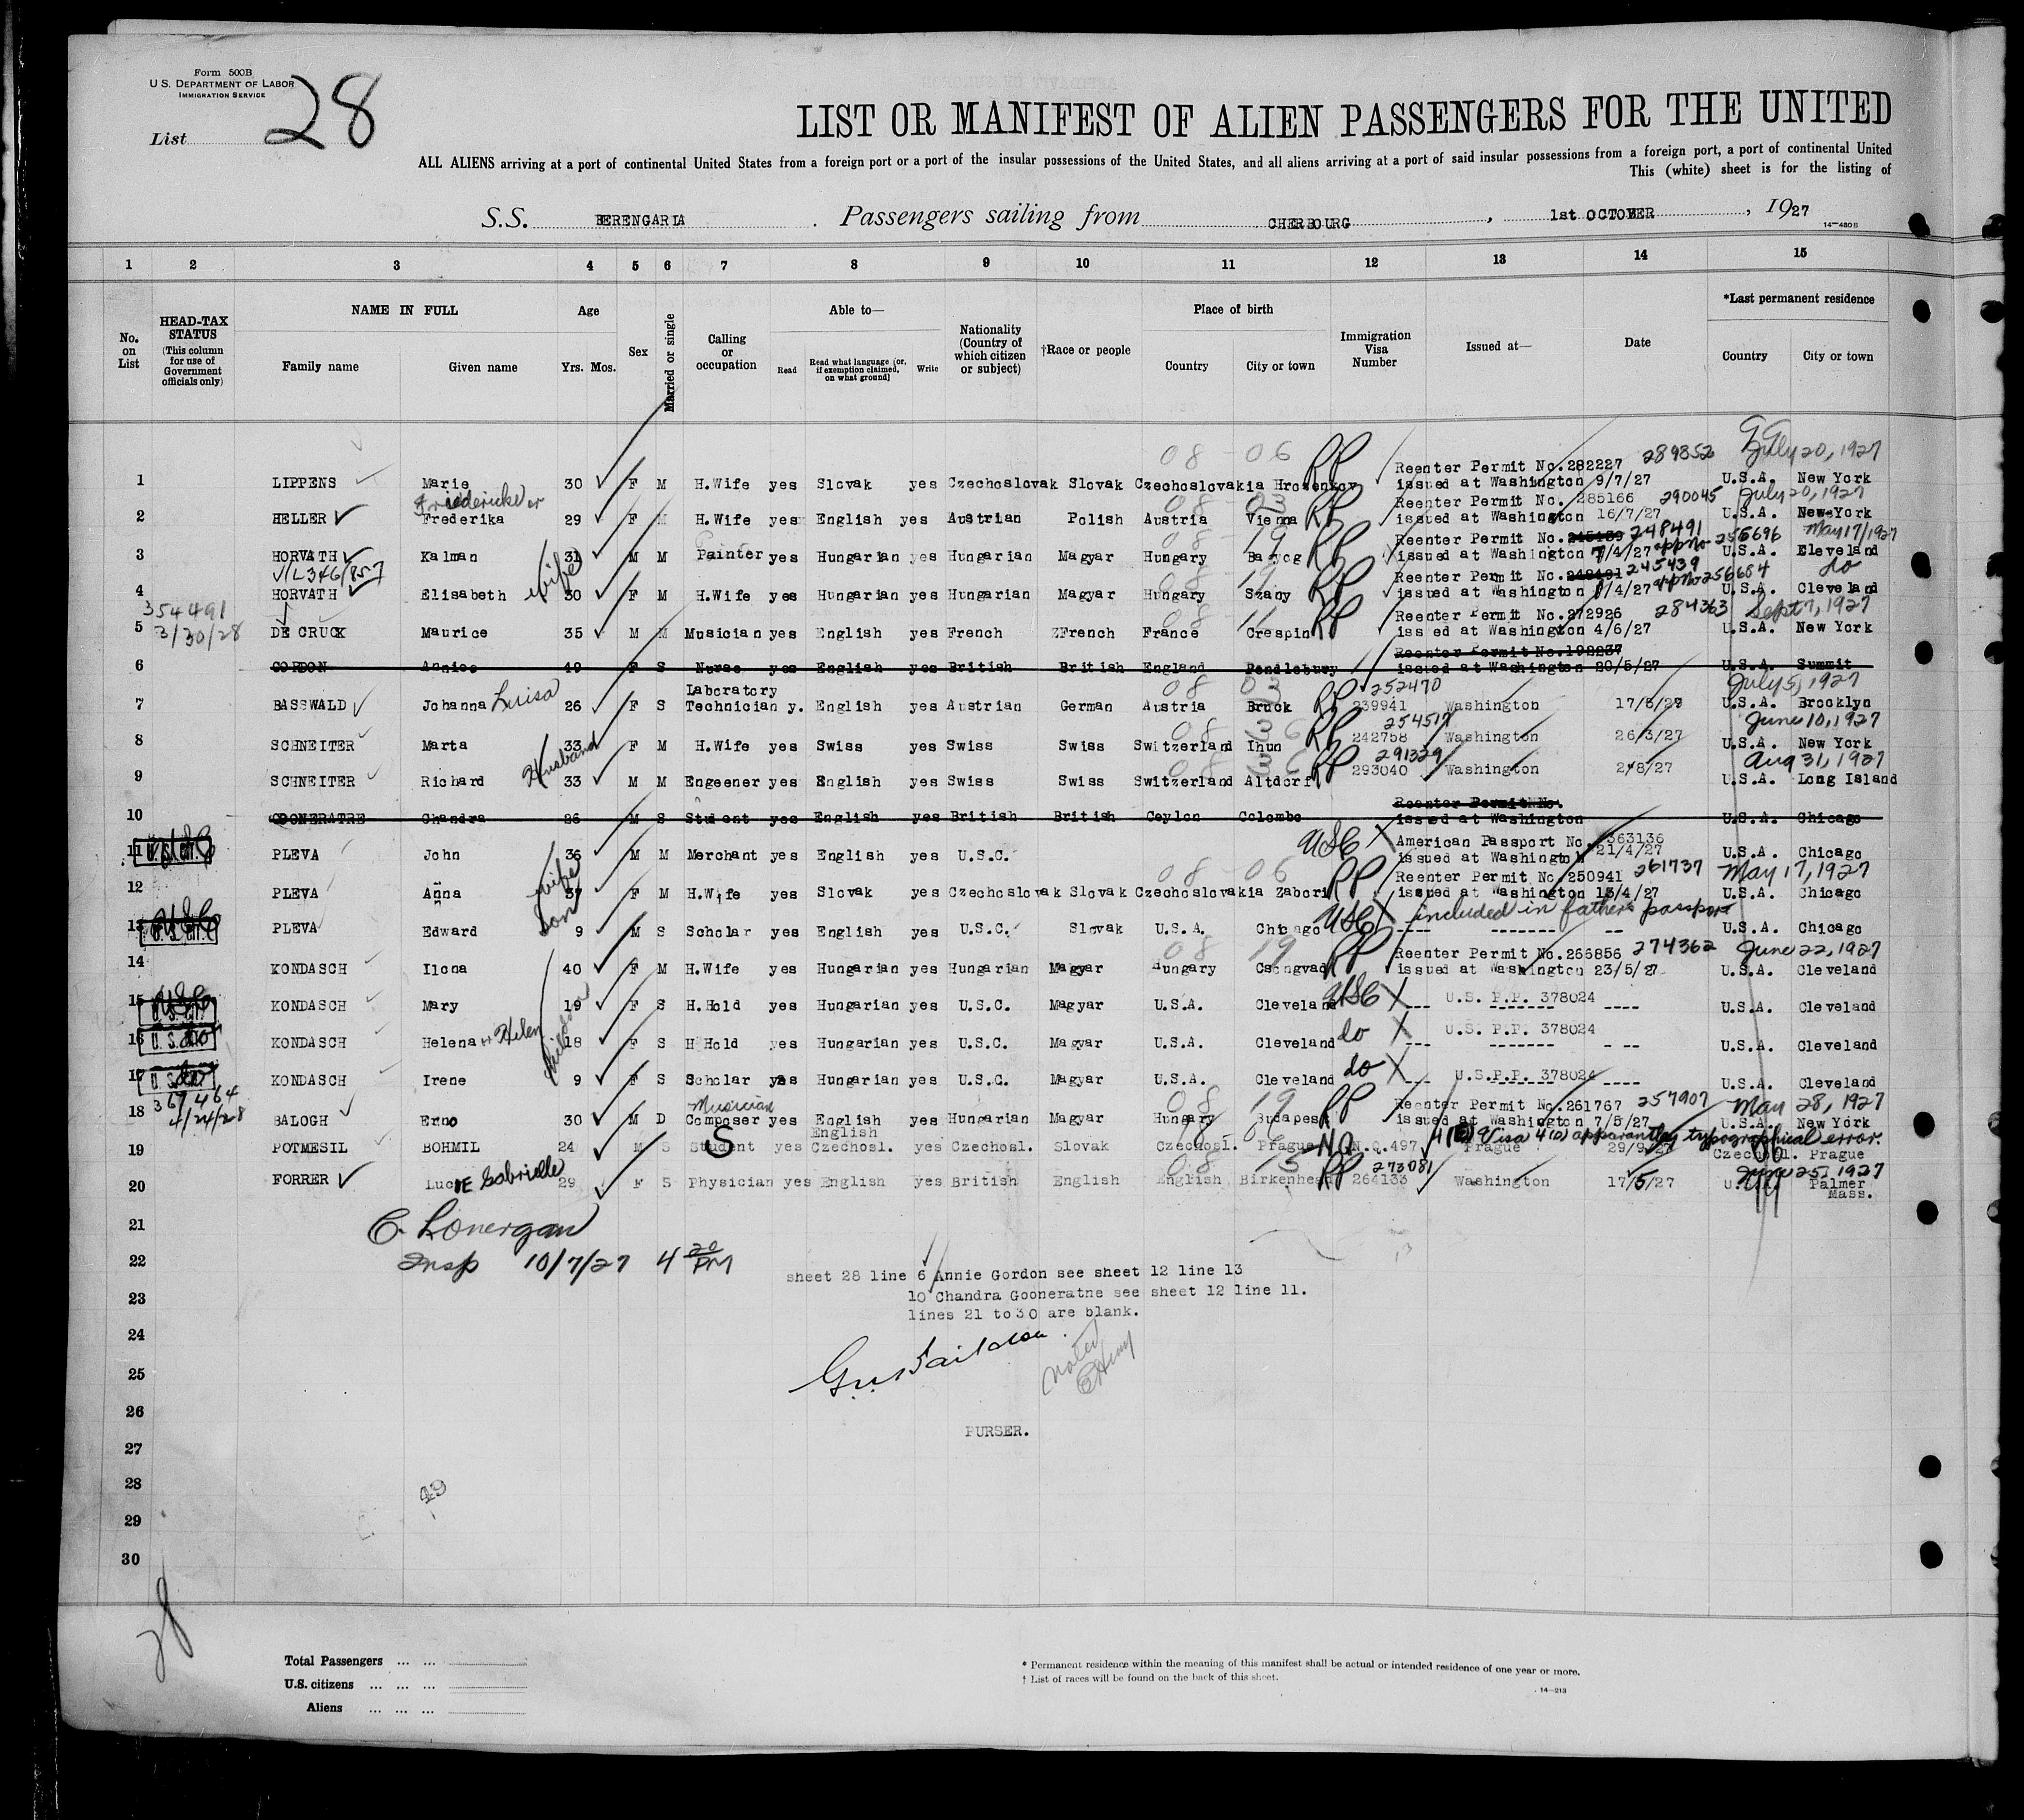 Form 500B
U.S. DEPARTMENT OF LABOR
IMMIGRATION SERVICE
List 28
LIST OR MANIFEST OF ALIEN PASSENGERS FOR THE UNITED
ALL ALIENS arriving at a port of continental United States from a foreign port or a port of the insular possessions of the United States, and all aliens arriving at a port of said insular possessions from a foreign port, a port of continental United
This (white) sheet is for the listing of
S.S. BERENGARIA. Passengers sailing from CHERBOURG, 1st OCTOBER, 1927
14-480B
1 2 3 4 5 6 7 8 9 10 11 12 13 14 15
No. on List
HEAD-TAX STATUS (This column for use of Government officials only)
NAME IN FULL
Family name Given name
Age Yrs. Mos.
Sex
Married or single
Calling or occupation
Able to—
Read Read what language (or, if exemption claimed, on what ground) Write
Nationality (Country of which citizen or subject)
†Race or people
Place of birth
Country City or town
Immigration Visa Number
Issued at—
Date
*Last permanent residence
Country City or town
08 - 06 RP Reenter Permit No.282227 289852 July 20, 1927
1 LIPPENS Marie 30 F M H.Wife yes Slovak yes Czechoslovak Slovak Czechoslovakia Hrosenkov issued at Washington 9/7/27 U.S.A. New York
Friedericke or 08 - 03 RP Reenter Permit No. 285166 290045 July 20, 1927
2 HELLER Frederika 29 F M H.Wife yes English yes Austrian Polish Austria Vienna issued at Washington 16/7/27 U.S.A. New York
08 - 19 RP Reenter Permit No.245439 248491 app no 256696 May 17/1927
3 HORVATH Kalman 31 M M Painter yes Hungarian yes Hungarian Magyar Hungary issued at Washington 7/4/27 U.S.A. Cleveland
wife 08 - 19 RP Reenter Permit No.248491 245439 app no 256684 do
4 HORVATH Elisabeth 30 F M H.Wife yes Hungarian yes Hungarian Magyar Hungary Szany issued at Washington 7/4/27 U.S.A. Cleveland
354491 3/30/28 08 - 11 RP Reenter Permit No.272926 284363 Sept 7, 1927
5 DE CRUCK Maurice 35 M M Musician yes English yes French French France Crespin issued at Washington 4/6/27 U.S.A. New York
Reenter Permit No.192237
6 GORDON Annice 49 F S Nurse yes English yes British British England Pendlebury issued at Washington 20/5/27 U.S.A. Summit
Laboratory 08 03 RP 252470 July 5, 1927
7 BASSWALD Johanna Luisa 26 F S Technician y. English yes Austrian German Austria Bruck 239941 Washington U.S.A. Brooklyn
RP 254517 June 10, 1927
8 SCHNEITER Marta 33 F M H.Wife yes Swiss yes Swiss Swiss Switzerland Thun 242758 Washington 26/3/27 U.S.A. New York
Husband RP 291329 Aug 31, 1927
9 SCHNEITER Richard 33 M M Engeener yes English yes Swiss Swiss Switzerland Altdorf 293040 Washington 2/8/27 U.S.A. Long Island
Reenter Permit No.
10 GOONERATNE Chandra 26 M S Student yes English yes British British Ceylon Colombo issued at Washington U.S.A. Chicago
USC X American Passport No. 363136
11 PLEVA John 36 M M Merchant yes English yes U.S.C. issued at Washington 21/4/27 U.S.A. Chicago
wife 08 - 06 RP Reenter Permit No.250941 261737 May 17, 1927
12 PLEVA Anna 37 F M H.Wife yes Slovak yes Czechoslovak Slovak Czechoslovakia Zabori issued at Washington 13/4/27 U.S.A. Chicago
son USC X included in fathers passport
13 PLEVA Edward 9 M S Scholar yes English yes U.S.C. Slovak U.S.A. Chicago ---- ------- -- U.S.A. Chicago
08 19 RP Reenter Permit No.266856 274362 June 22, 1927
14 KONDASCH Ilona 40 F M H.Wife yes Hungarian yes Hungarian Magyar Hungary Csongvad issued at Washington 23/5/27 U.S.A. Cleveland
15 KONDASCH Mary 19 F S H.Hold yes Hungarian yes U.S.C. Magyar U.S.A. Cleveland USC X U.S. P.P. 378024 ---- U.S.A. Cleveland
16 KONDASCH Helena or Helen 18 F S H Hold yes Hungarian yes U.S.C. Magyar U.S.A. Cleveland do X U.S. P.P. 378024 U.S.A. Cleveland
children
17 KONDASCH Irene 9 F S Scholar yes Hungarian yes U.S.C. Magyar U.S.A. Cleveland do X U.S.P.P. 378024 ---- U.S.A. Cleveland
367464 4/24/28 Musician 08 19 RP Reenter Permit No.261767 257907 May 28, 1927
18 BALOGH Erno 30 M D Composer yes English yes Hungarian Magyar Hungary Budapest issued at Washington 7/5/27 U.S.A. New York
English Visa 4(e) apparantley typographical error.
19 POTMESIL BOHMIL 24 M S Student S yes Czechosl. yes Czechosl. Slovak Czechosl. Prague N.Q. N.Q.497 Prague Czechosl. Prague
08 15 RP 273081 June 25, 1927
20 FORRER Lucie Gabrielle 29 F S Physician yes English yes British English English Birkenhead 264133 Washington 17/5/27 Palmer Mass.
21
C. Lonergan
22 Insp 10/7/27 4 20 PM
sheet 28 line 6 Annie Gordon see sheet 12 line 13
23 10 Chandra Gooneratne see sheet 12 line 11.
lines 21 to 30 are blank.
24
25 noted
26
PURSER.
27
28
29
30
28
Total Passengers ... ...
U.S. citizens ... ... ...
Aliens ... ... ...
* Permanent residence within the meaning of this manifest shall be actual or intended residence of one year or more.
† List of races will be found on the back of this sheet.
14-213